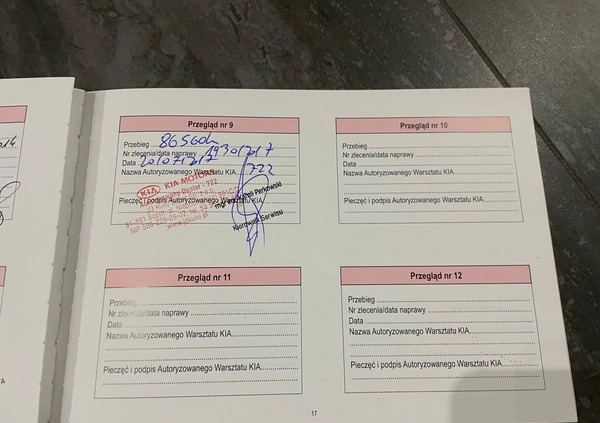 Przegląd nr 9
Przebieg 86560
Nr zlecenia/data naprawy 1930/2017
Data 20/07/2017
Nazwa Autoryzowanego Warsztatu KIA 722
KIA KIA MOTORS
Autoryzowany Dealer - 722
Pieczęć i podpis Autoryzowanego Warsztatu KIA
Perkowski
Kierownik Serwisu
Przegląd nr 10
Przebieg
Nr zlecenia/data naprawy
Data
Nazwa Autoryzowanego Warsztatu KIA
Pieczęć i podpis Autoryzowanego Warsztatu KIA
Przegląd nr 11
Przebieg
Nr zlecenia/data naprawy
Data
Nazwa Autoryzowanego Warsztatu KIA
Pieczęć i podpis Autoryzowanego Warsztatu KIA
Przegląd nr 12
Przebieg
Nr zlecenia/data naprawy
Data
Nazwa Autoryzowanego Warsztatu KIA
Pieczęć i podpis Autoryzowanego Warsztatu KIA
17